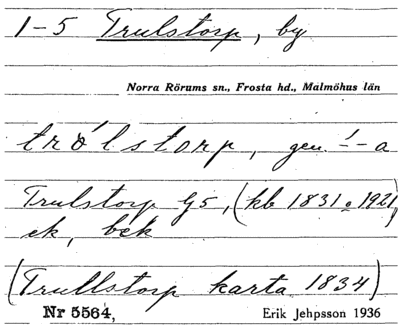 1-5 Trulstorp, by
Norra Rörums sn., Frosta hd., Malmöhus län
trólstorp, gen. -́-a
Trulstorp G5, (kb 1831 o 1921)
ek, bek
(Trullstorp karta 1834)
Nr 5564, Erik Jehpsson 1936